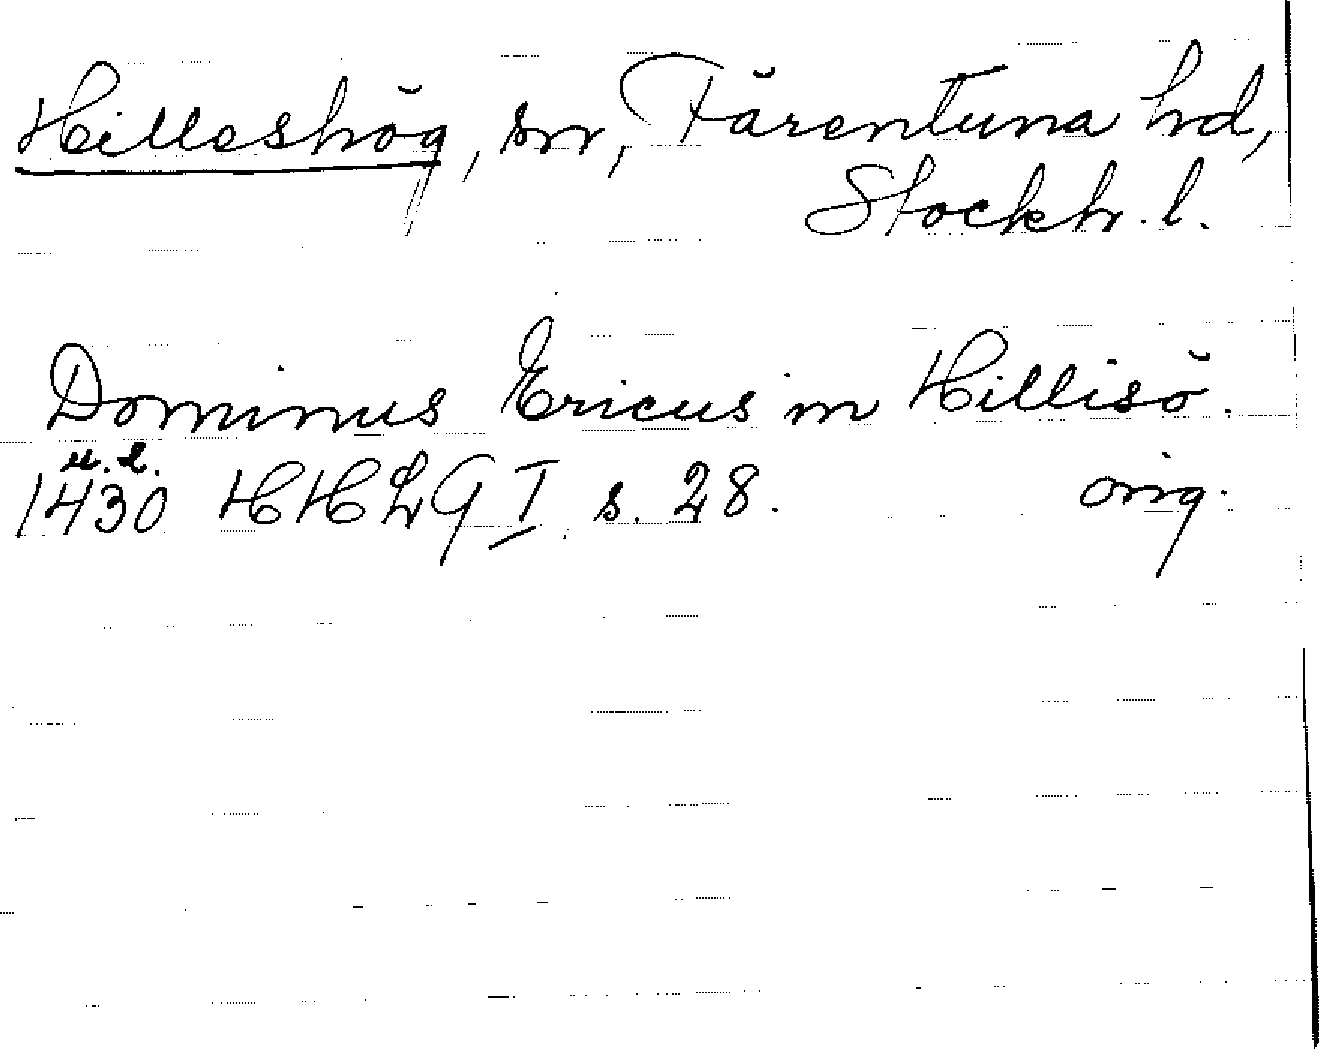 Hilleshög, sn, Färentuna hd,
Stockh. l.
Dominus Ericus in Hillisö.
u. l.
1430 HHLG I s. 28. orig.